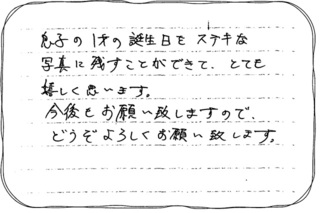 息子の1才の誕生日をステキな
写真に残すことができて、とても
嬉しく思います。
今後もお願い致しますので、
どうぞよろしくお願い致します。